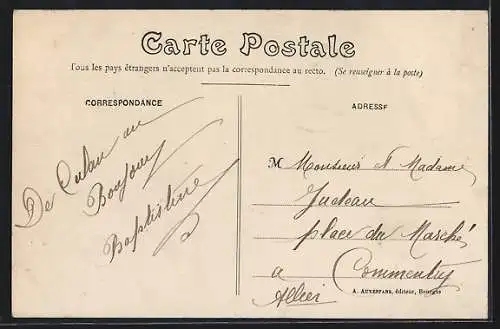 Carte Postale
Tous les pays étrangers n'acceptent pas la correspondance au recto. (Se renseigner à la poste)
CORRESPONDANCE
ADRESSE
De Culan un
Bonjour
Baptistine
M Monsieur et Madame
Judeau
place du Marché
a Commentry
Allier
A. AUXENFANS, éditeur, Bourges